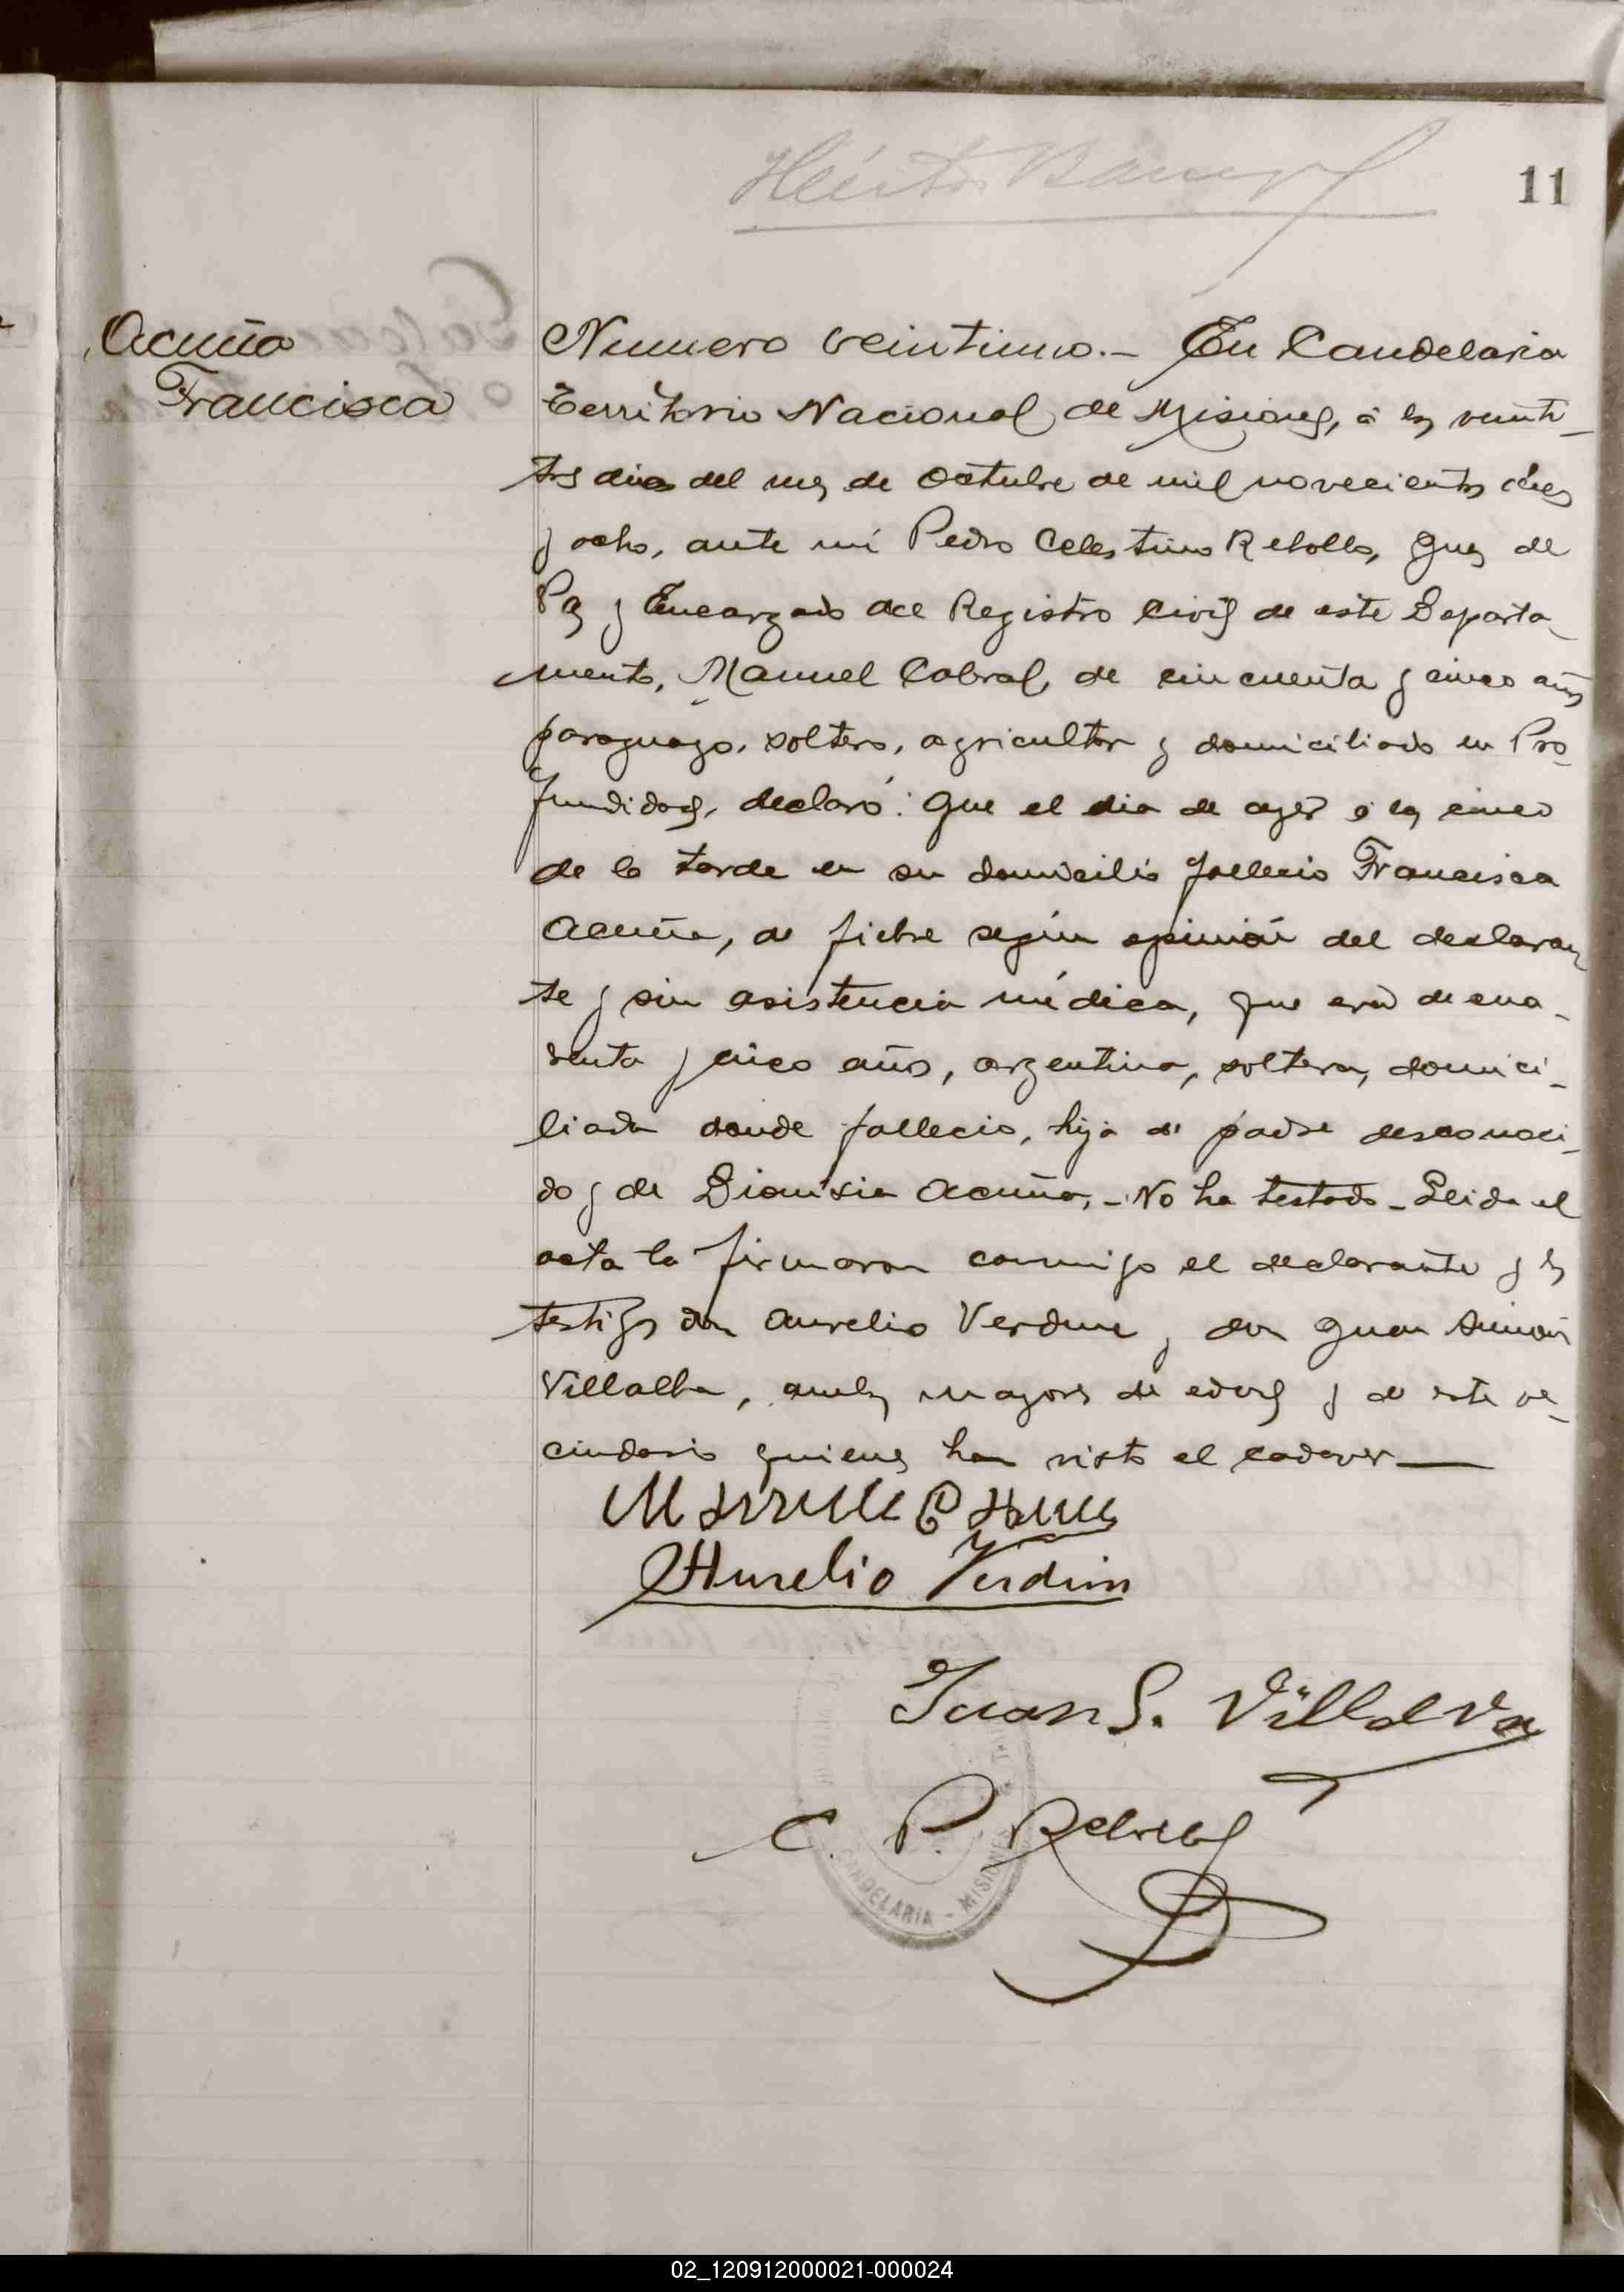 11
Acuña
Francisca
Numero veintiuno.- En Candelaria
Territorio Nacional de Misiones, á los veinti-
tres dias del mes de Octubre de mil novecientos diez
y ocho, ante mi Pedro Celestino Rebollo, Juez de
Paz y Encargado del Registro Civil de este Departa-
mento, Manuel Cabral, de cincuenta y cinco años
paraguayo, soltero, agricultor y domiciliado en Pro-
fundidad, declaró: Que el dia de ayer á las cinco
de la tarde en su domicilio fallecio Francisca
Acuña, de fiebre según opinión del declaran
te y sin asistencia médica, que era de cua-
renta y cinco años, argentina, soltera, domici-
liada donde fallecio, hija de padre desconoci-
do y de Dionisia Acuña,- No ha testado - Leida el
acta la firmaron conmigo el declarante y los
testigos don Aurelio Verdun y don Juan Simón
Villalba, ambos mayores de edad y de este ve-
cindario quienes han visto el cadaver
Aurelio Verdun
Juan S. Villalva
C. P. Rebollo
CANDELARIA - MISIONES
02_120912000021-000024